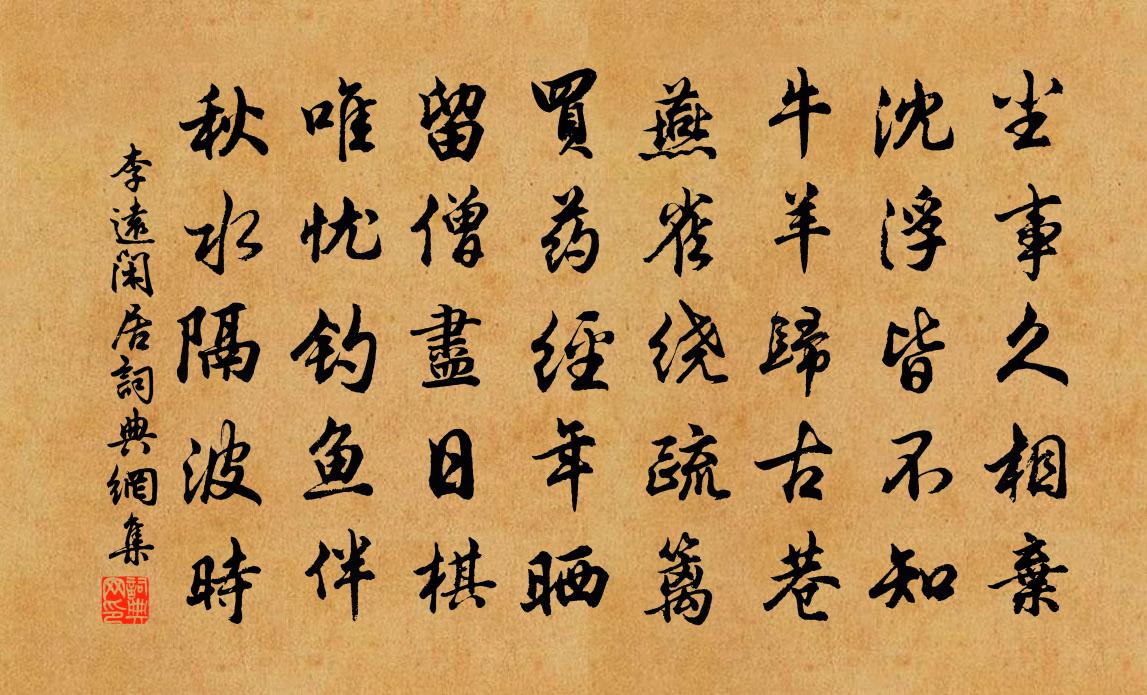 尘事久相棄
沈浮皆不知
牛羊歸古巷
燕雀绕疏篱
買药經年晒
留僧盡日棋
唯忧钓鱼伴
秋水隔波時
李遠閑居詞典網集
詞典网印